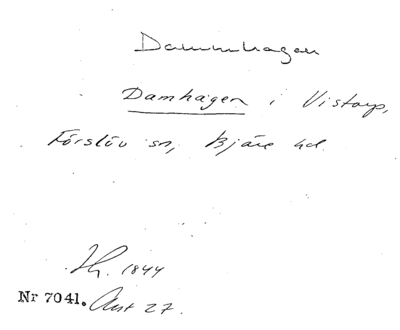 Dammhagen
Damhagen i Vistorp,
Förslöv sn, Bjäre hd.
1844
Nr 7041. Akt 27.